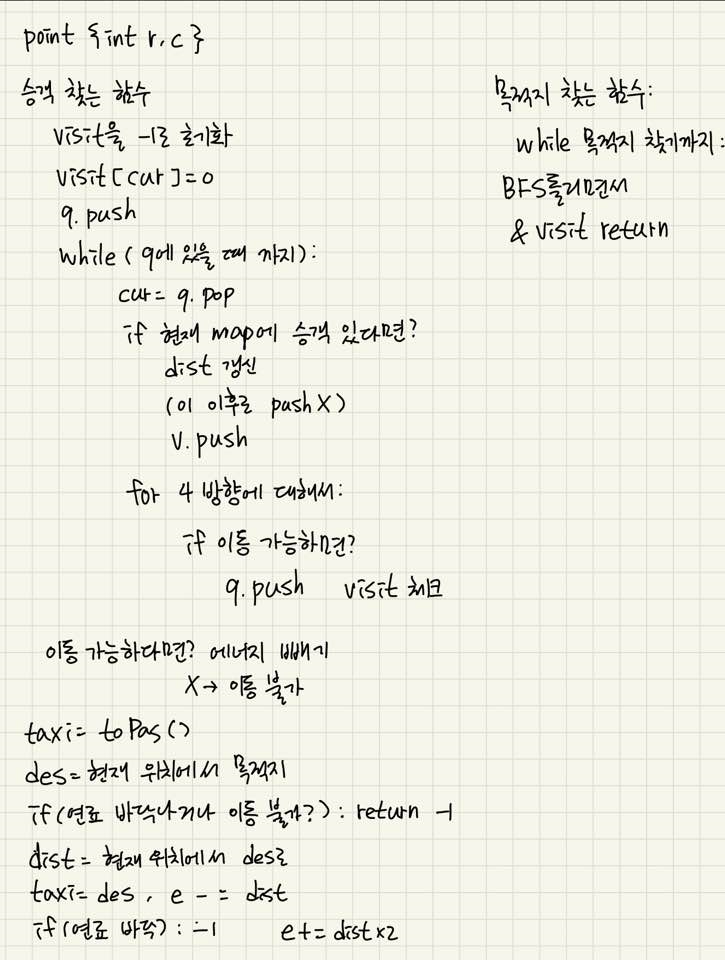 point {int r, c }
승객 찾는 함수
visit을 -1로 초기화
visit[cur]=0
q. push
while ( q에 있을 때 까지):
cur= q. pop
if 현재 map에 승객 있다면?
dist 갱신
(이 이후로 push X)
v. push
for 4 방향에 대해서:
if 이동 가능하면?
q. push visit 체크
이동 가능하다면? 에너지 빼기
X→ 이동 불가
taxi= toPas()
des= 현재 위치에서 목적지
if(연료 바닥나거나 이동 불가?): return -1
dist= 현재 위치에서 des로
taxi= des, e -= dist
if(연료 바닥): -1 e+= dist×2
목적지 찾는 함수:
while 목적지 찾기까지:
BFS돌리면서
& visit return